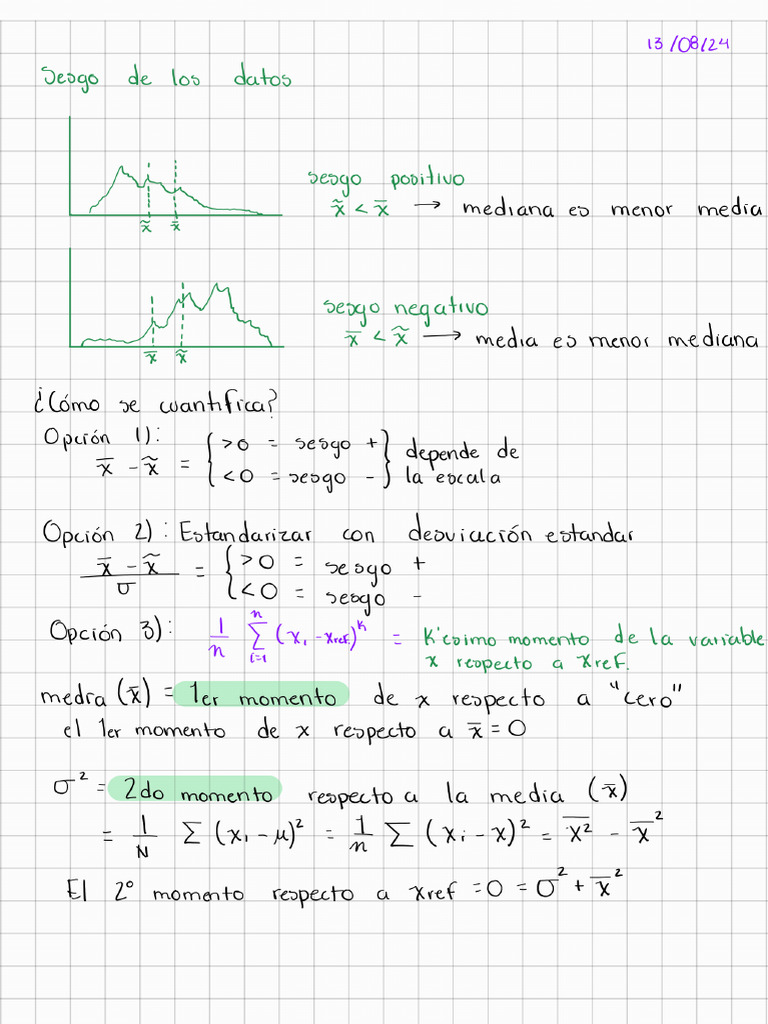 13/08/24
Sesgo de los datos
x̃ x̄
sesgo positivo
x̃ < x̄ → mediana es menor media
x̄ x̃
sesgo negativo
x̄ < x̃ → media es menor mediana
¿Cómo se cuantifica?
Opción 1):
x̄ - x̃ = { >0 = sesgo + } depende de
{ <0 = sesgo - } la escala
Opción 2): Estandarizar con desviación estandar
(x̄ - x̃)/σ = { >0 = sesgo +
{ <0 = sesgo -
Opción 3): 1/n Σ_{i=1}^{n} (x_i - x_ref)^k = K'esimo momento de la variable
x respecto a xref.
medra (x̄) = 1er momento de x respecto a "cero"
el 1er momento de x respecto a x̄ = 0
σ² = 2do momento respecto a la media (x̄)
= 1/N Σ (x_i - μ)² = 1/n Σ (x_i - x)² = x̄² - x̄²
El 2° momento respecto a xref = 0 = σ² + x̄²